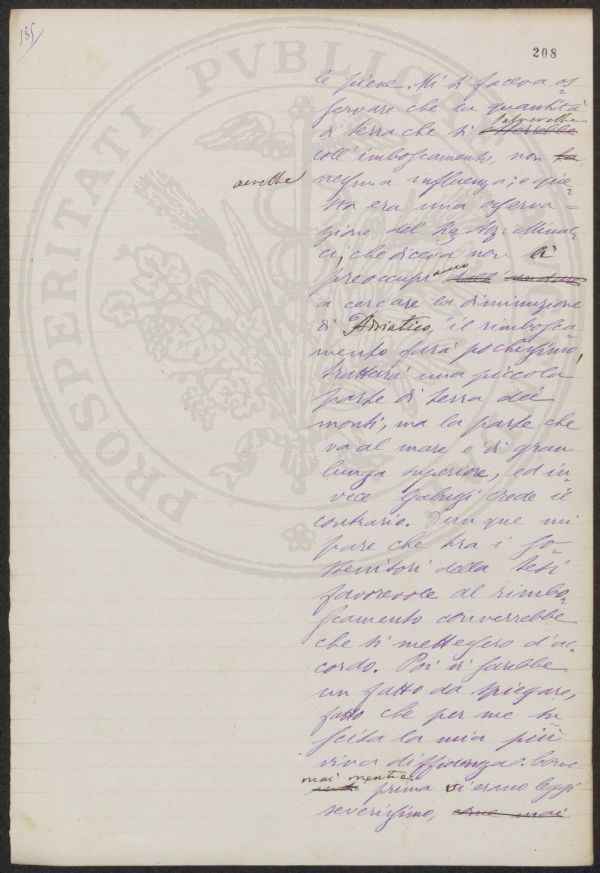 185
208
PROSPERITATI PVBLICAE
le piene. Mi si faceva os-
servare che la quantità
salverebbe
di terra che si
coll'imboscamento, non
avrebbe
nessuna influenza; e que-
sta era una osserva-
zione del
ci, che diceva non ci
preoccupiamo
a cercare la diminuzione
di Adriatico, il rimbosca-
mento farà pochissimo,
tratterrà una piccola
parte di terra dei
monti, ma la parte che
va al mare è di gran
lunga superiore, ed in-
vece Gabussi crede il
contrario. Dunque mi
pare che tra i so-
stenitori della tesi
favorevole al rimbo-
scamento converrebbe
che si mettessero d'ac-
cordo. Poi vi sarebbe
un fatto da spiegare,
fatto che per me su-
scita la mia più
viva diffidenza. Come
mai mentre
prima vi erano leggi
severissime, come mai